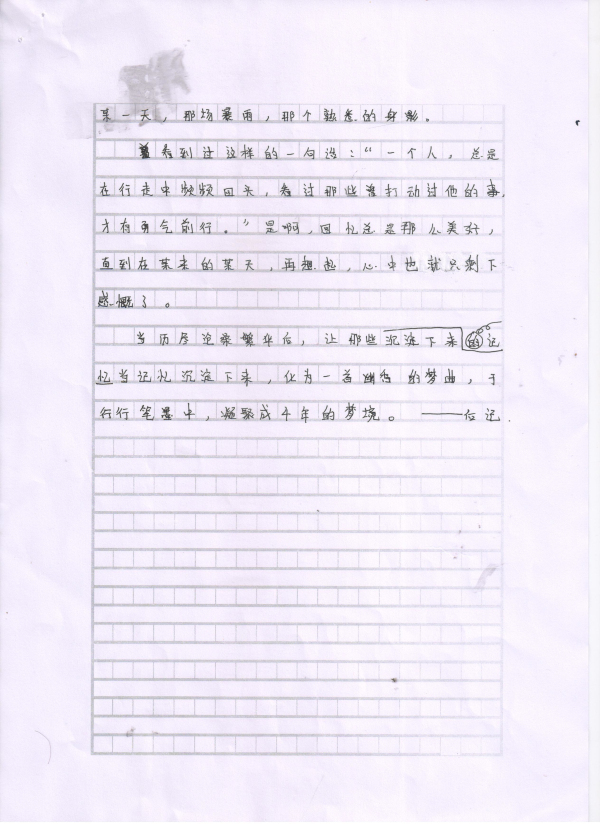 某一天，那场暴雨，那个熟悉的身影。
看到过这样的一句话：“一个人，总是
在行走中频频回头，看过那些曾打动过他的事，
才有勇气前行。”是啊，回忆总是那么美好，
直到在某来的某天，再想起，心中也就只剩下
感概了。
当历尽沧桑繁华后，让那些沉淀下来的记
忆当记忆沉淀下来，化为一首幽香的梦曲，于
行行笔墨中，凝聚成千年的梦境。——后记.